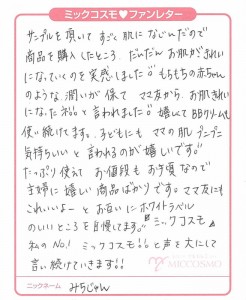 ミックコスモ♥ファンレター
サンプルを頂いて すごく肌になじんだので
商品を購入したところ、だんだん お肌がきれい
になっていくのを実感しました!! もちもちの赤ちゃん
のような潤いが保て ママ友から、お肌きれい
になったネ!!と言われました!! 嬉しくてBBクリームも
使い続けてます。子どもにも ママの肌 プニプニ
気持ちいいと言われるのが嬉しいです!!
たっぷり使えて お値段も お手頃なので
主婦に嬉しい商品ばかりです。ママ友にも
これいいよーと お互いに ホワイトラベル
のいいところを自慢してます。ミックコスモ
私のNo.1 ミックコスモ!!と声を大にして
言い続けていきます!!
MICCOSMO
ニックネーム みちじゅん